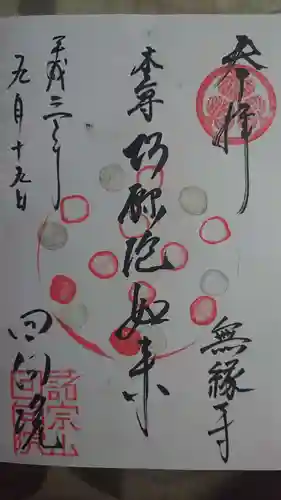 奉拝
無縁寺
本尊 阿弥陀如来
平成二十
九月十九日
回向院
諸宗山
回向院